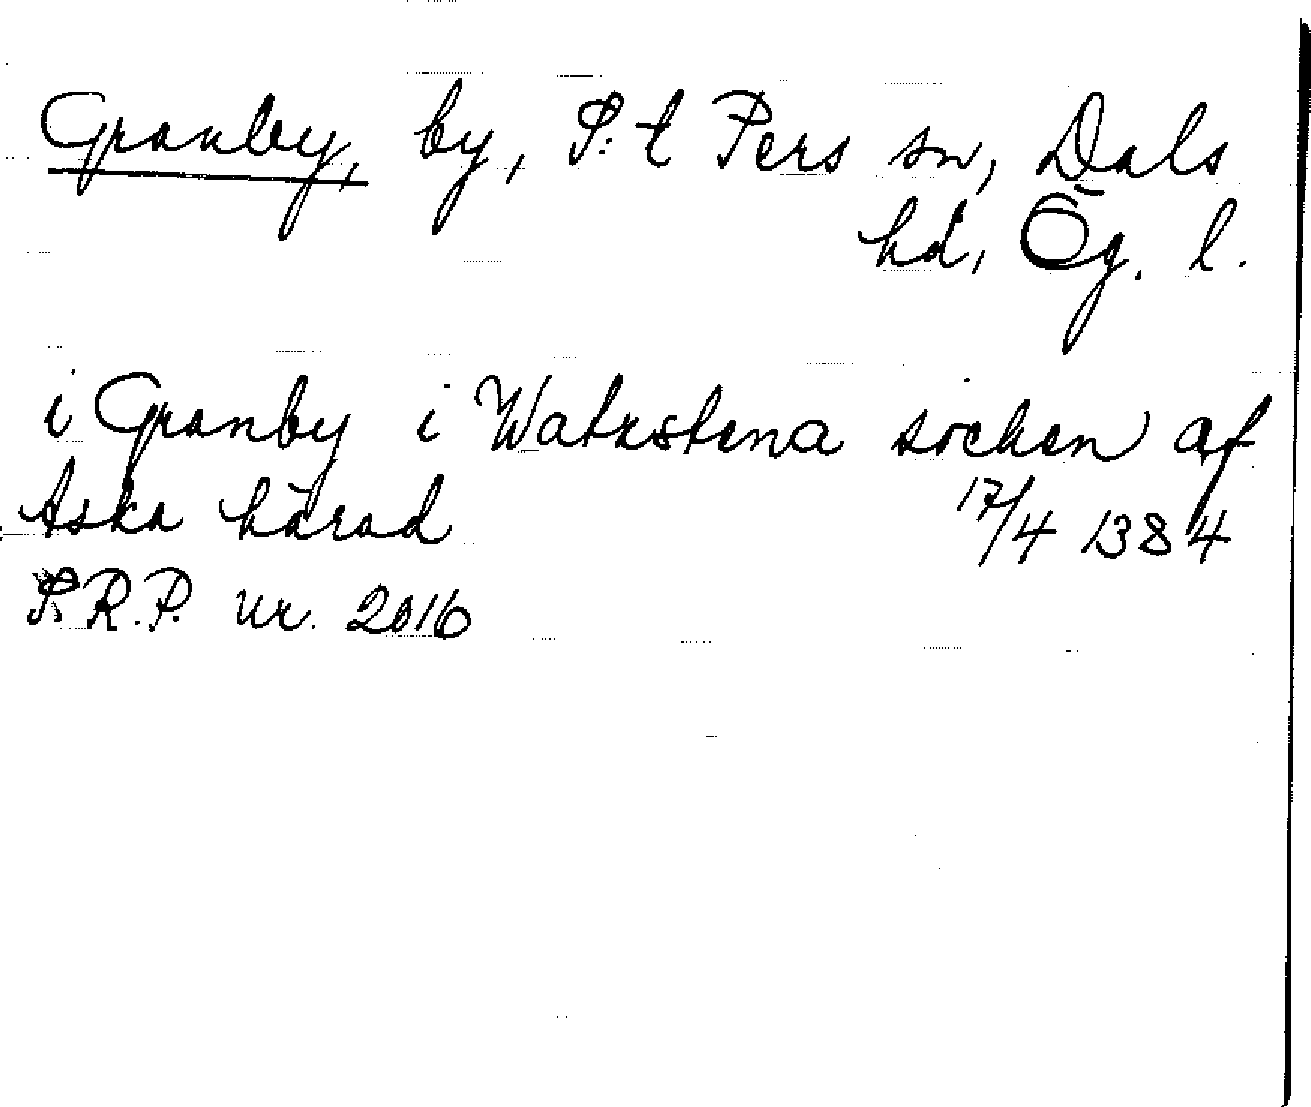 Granby, by, S:t Pers sn, Dals
hd, Ög. l.
i Granby i Watzstena socken af
Aska härad 17/4 1384
S.R.P. nr. 2016